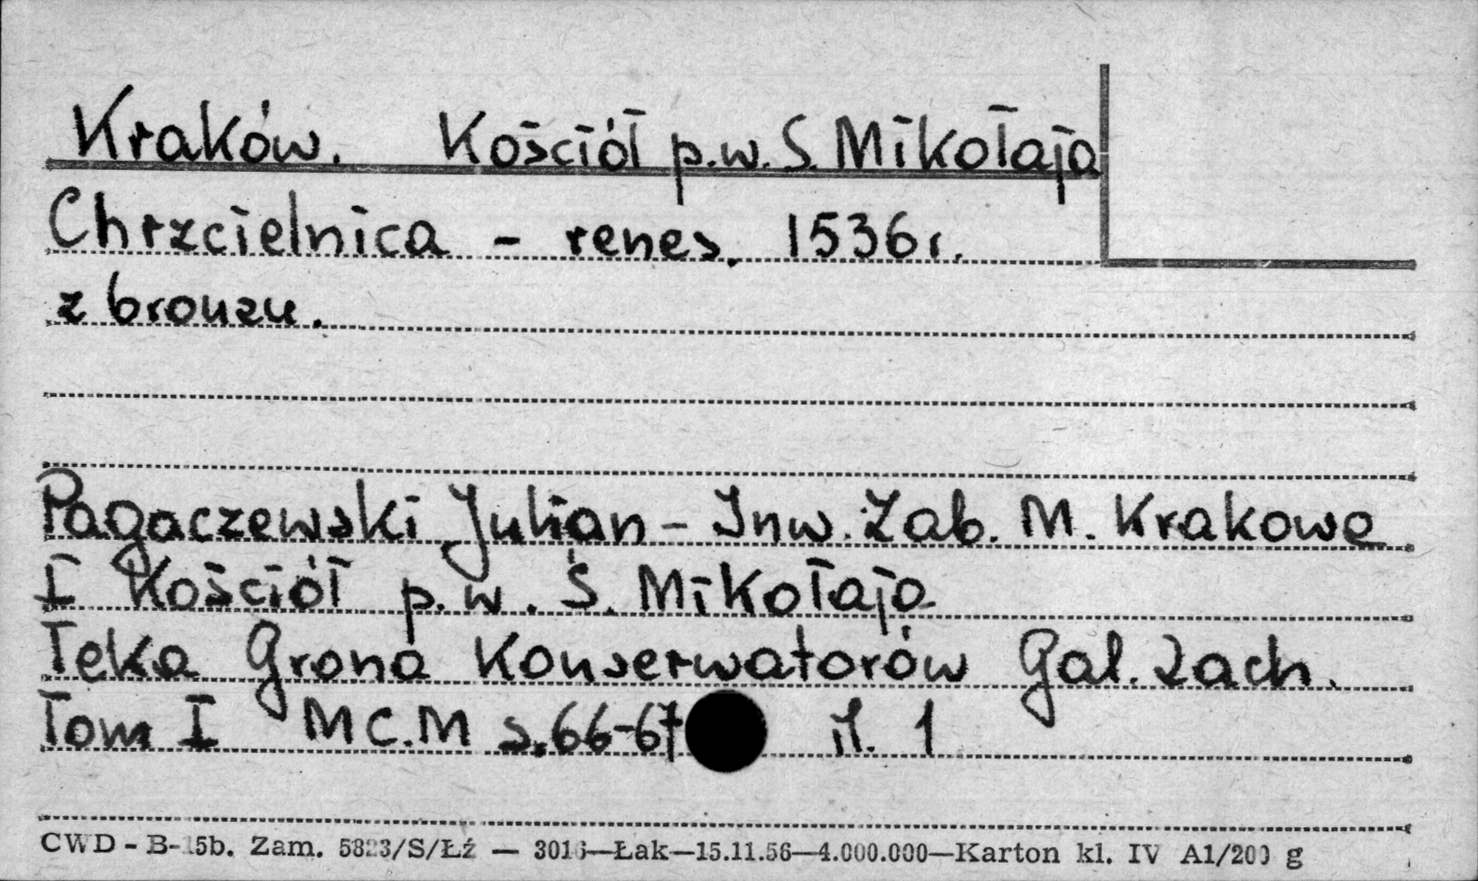 Kraków. Kościół p.w. S. Mikołaja
Chrzcielnica - renes. 1536 r.
z bronzu.
Pagaczewski Julian - Inw. Zab. M. Krakowa
I Kościół p. w. S. Mikołaja
Teka Grona Konserwatorów Gal. Zach.
Tom I MC.M s. 66-67 il. 1
CWD - B-15b. Zam. 5823/S/Łź — 3016—Łak—15.11.56—4.000.000—Karton kl. IV A1/200 g